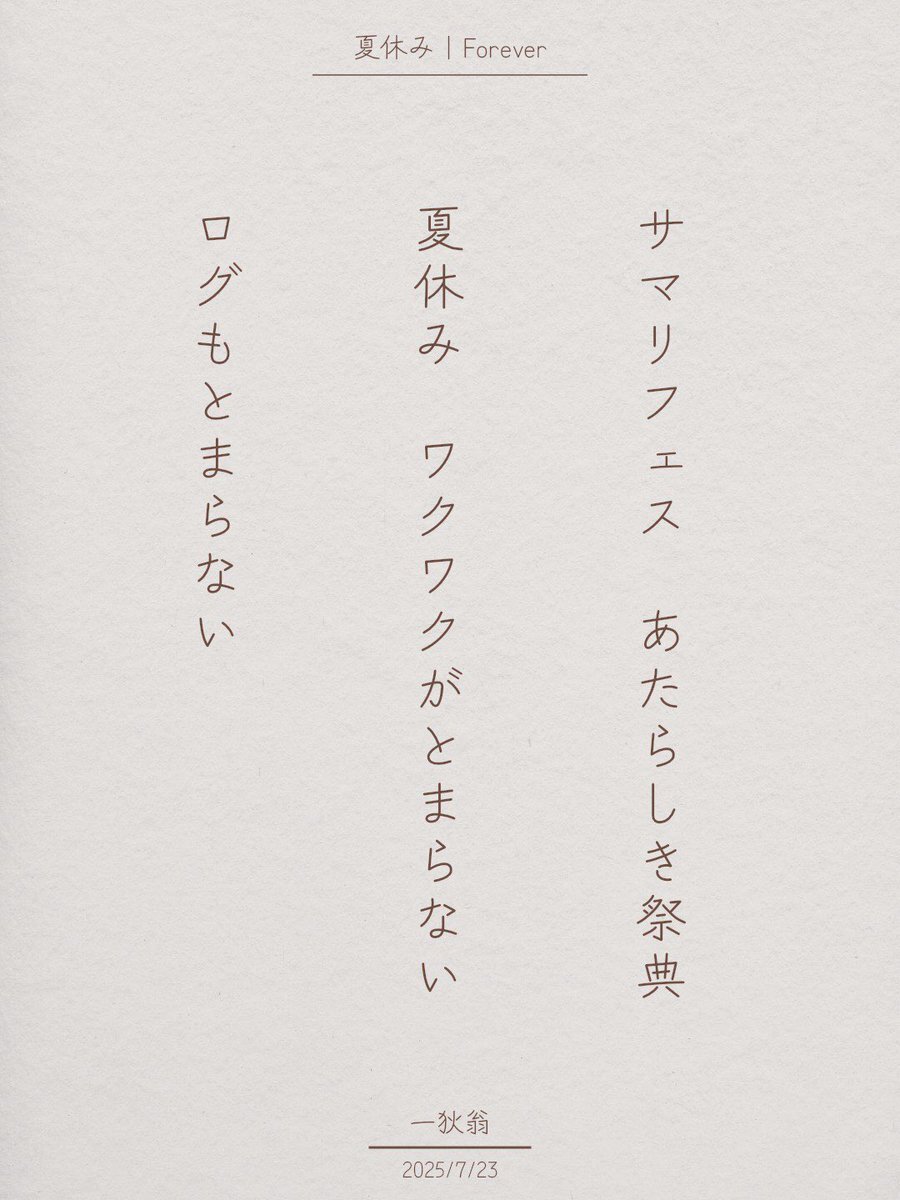 夏休み｜Forever
サマリフェス　あたらしき祭典
夏休み　ワクワクがとまらない
ログもとまらない
一狄翁
2025/7/23